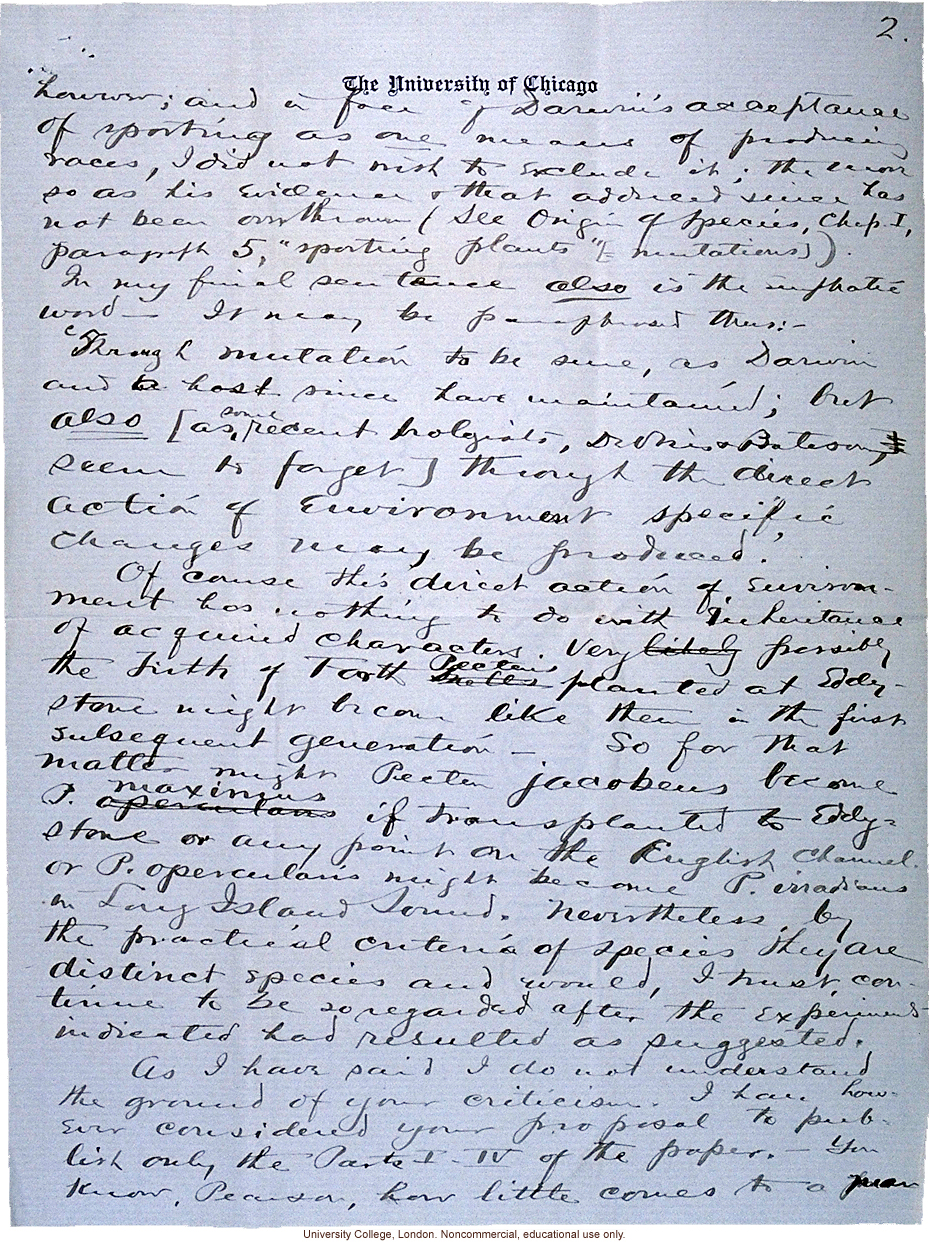 2.
The University of Chicago
however; and in face of Darwin's acceptance
of sporting as one means of producing
races, I did not wish to exclude it; the more
so as his evidence & that adduced since has
not been overthrown (See Origin of Species, Chap. I,
paragraph 5, "sporting plants" [= mutations]).
In my final sentence also is the emphatic
word — It may be paraphrased thus:-
"Through mutation to be sure, as Darwin
and a host since have maintained; but
some
also [as, recent biologists, DeVries & Bateson,
seem to forget] through the direct
action of Environment specific
changes may be produced."
Of course this direct action of Environ-
ment has nothing to do with Inheritance
of acquired characters. Very likely possibly
Pectens
the Firth of Forth shells planted at Eddy-
stone might become like them in the first
subsequent generation — So for that
matter might Pecten jacobeus become
maximus
P. opercularis if transplanted to Eddy-
stone or any point on the English Channel.
or P. opercularis might become P. irradians
in Long Island Sound. Nevertheless, by
the practical criteria of species they are
distinct species and would, I trust, con-
tinue to be so regarded after the experiments
indicated had resulted as suggested.
As I have said I do not understand
the ground of your criticism. I have how-
ever considered your proposal to pub-
lish only the Parts I-IV of the paper. — You
know, Pearson, how little comes to a man
University College, London. Noncommercial, educational use only.